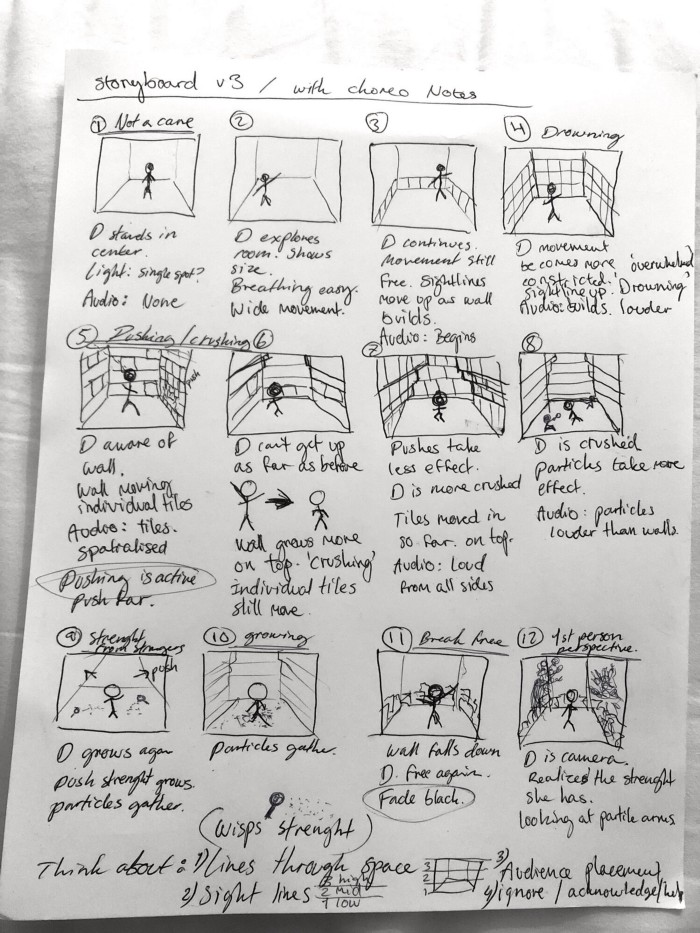 Storyboard v3 / with choreo Notes
① Not a cane
D stands in
center.
Light: single spot?
Audio: None
②
D explores
room. Shows
size.
Breathing easy.
Wide movement.
③
D continues.
Movement still
Free. Sightlines
move up as wall
builds.
Audio: Begins
④ Drowning
D movement
becomes more 'overwhelmed
constricted. 'Drowning'
sightline up.
Audio: builds. louder
⑤ Pushing/crushing ⑥
push
D aware of
wall.
Wall moving
individual tiles
Audio: tiles.
spatralised
Pushing is active
push far.
D can't get up
as far as before
wall grows more
on top. 'crushing'
Individual tiles
still move.
⑦
Pushes take
less effect.
D is more crushed
Tiles moved in
so far. on top.
Audio: Loud
from all sides
⑧
D is crushed
particles take more
effect.
Audio: particles
louder than walls.
⑨ Strenght
from strangers
push
D grows again
push strenght grows.
particles gather.
⑩ growing
Particles gather.
⑪ Break free
wall falls down
D. free again.
Fade black.
⑫ 1st person
perspective.
D is camera.
Realizes the strenght
she has.
looking at partile arms
Wisps strenght
Think about: 1) lines through space
3
2
1
2) Sight lines
3 high
2 mid
1 low
3) Audience placement
4) ignore / acknowledge/help